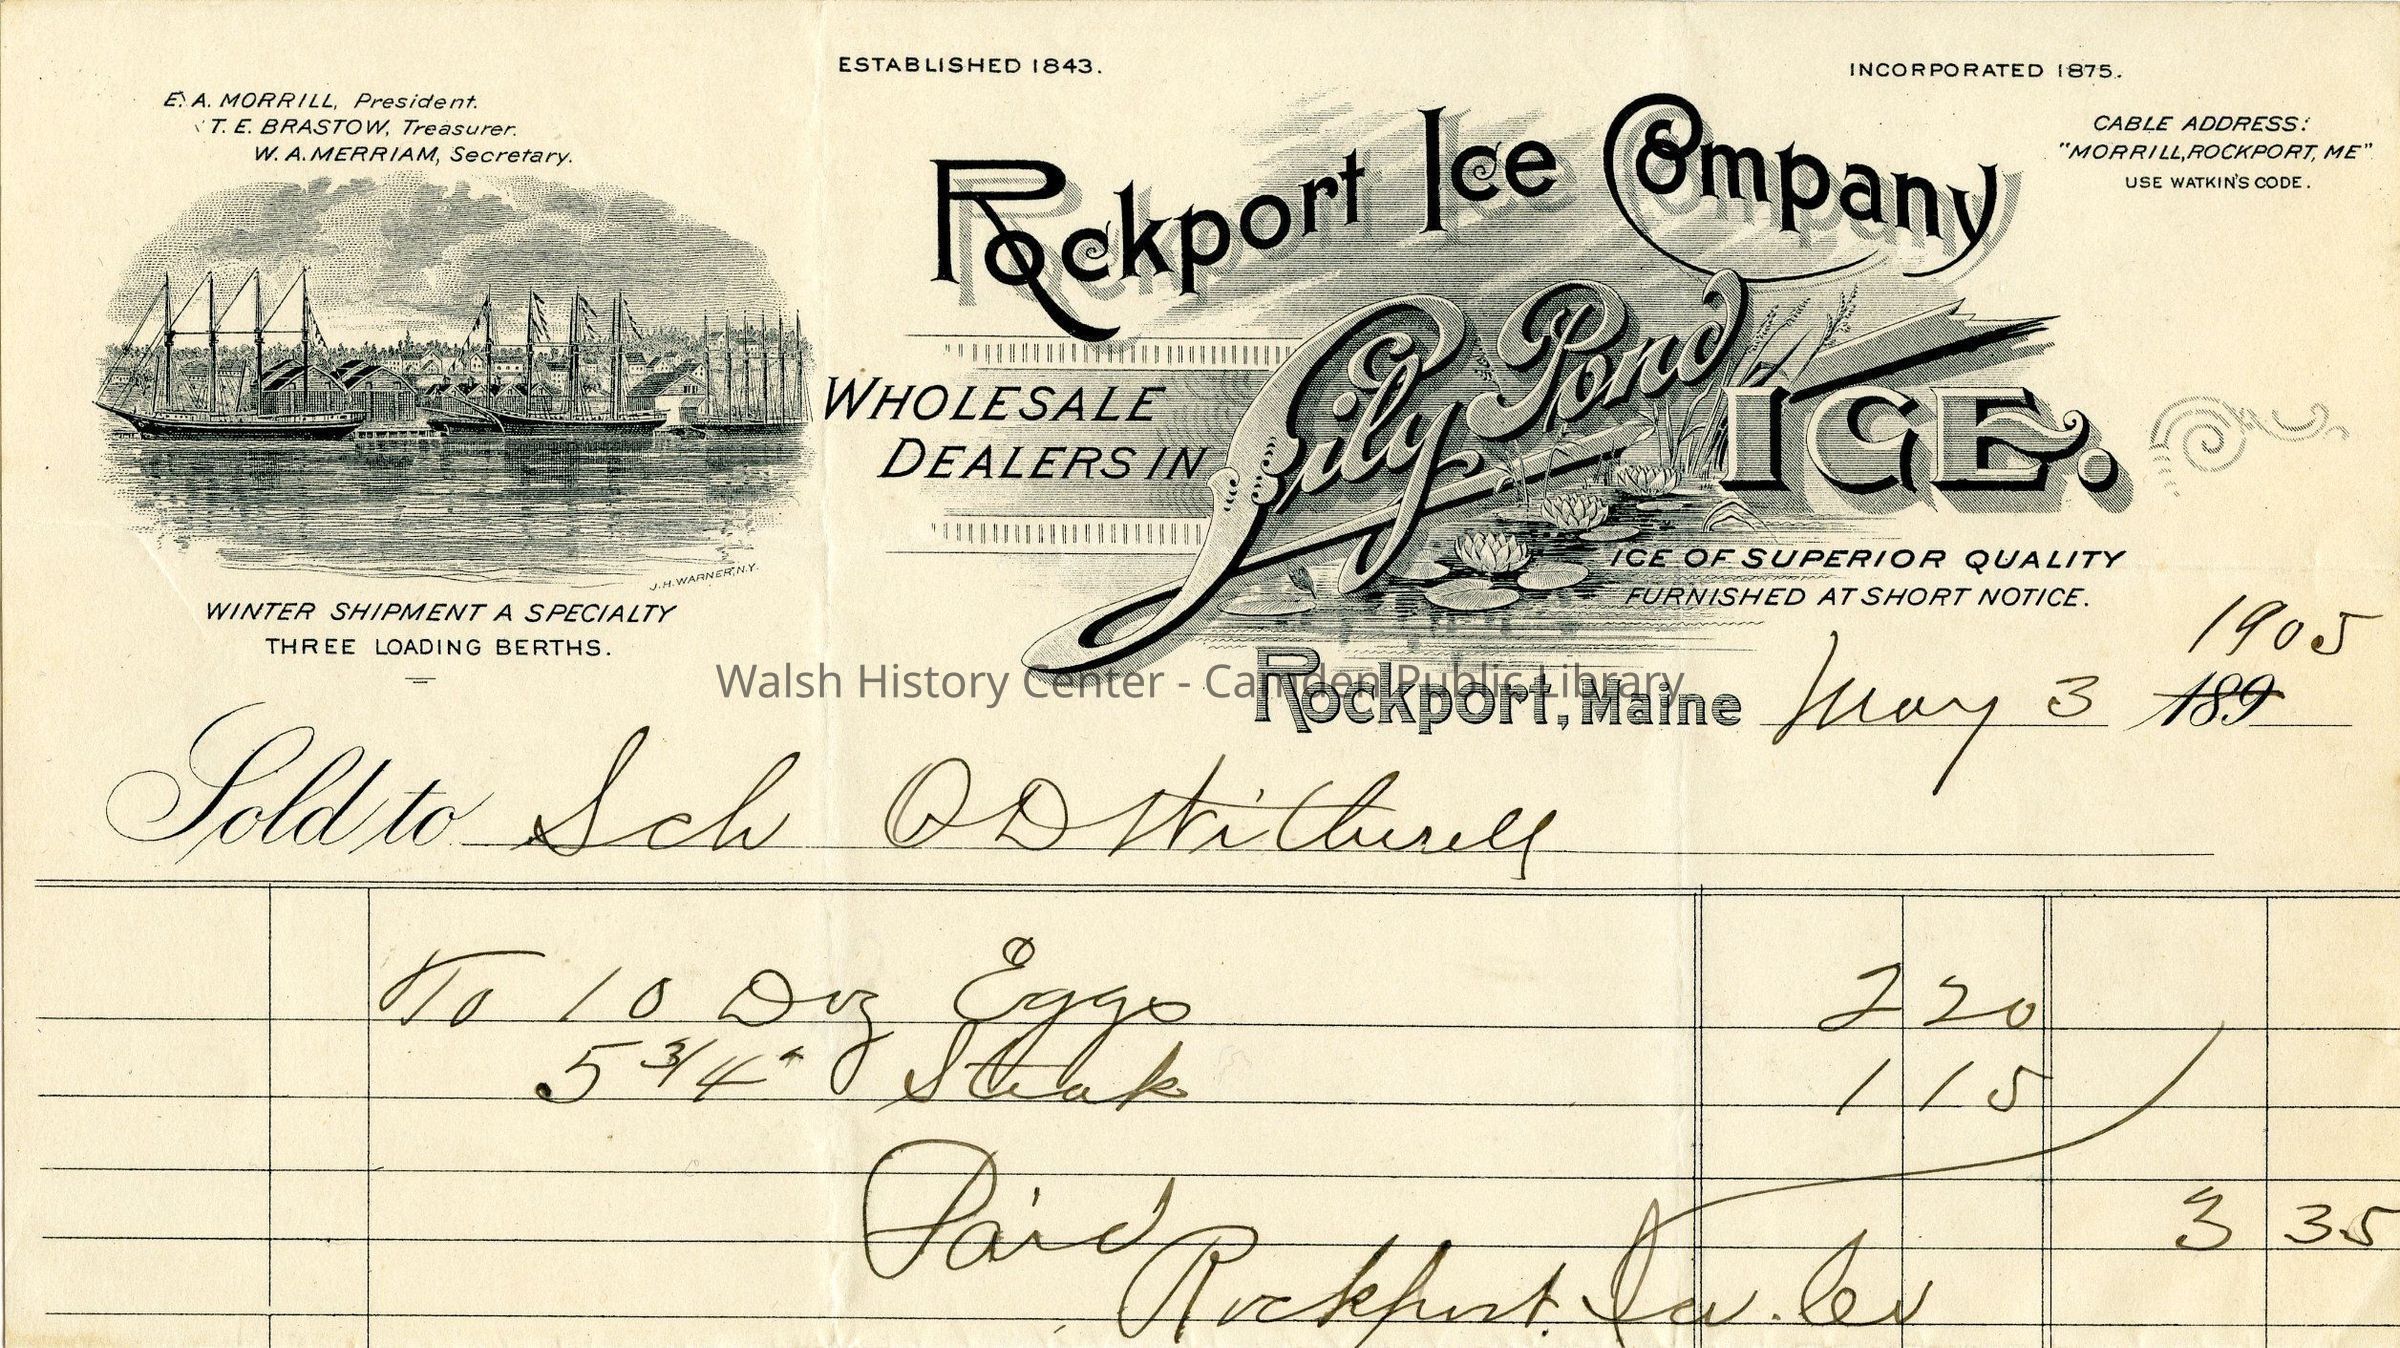 ESTABLISHED 1843.
INCORPORATED 1875.
E. A. MORRILL, President.
T. E. BRASTOW, Treasurer.
W. A. MERRIAM, Secretary.
CABLE ADDRESS:
"MORRILL, ROCKPORT, ME"
USE WATKIN'S CODE.
Rockport Ice Company
WHOLESALE
DEALERS IN
Lily Pond
ICE.
J.H. WARNER, N.Y.
ICE OF SUPERIOR QUALITY
FURNISHED AT SHORT NOTICE.
WINTER SHIPMENT A SPECIALTY
THREE LOADING BERTHS.
Walsh History Center - Camden Public Library
1905
Rockport, Maine May 3 189
Sold to Sch O D Witherell
To 10 Doz Eggs 2 20
5 3/4 " Steak 1 15
Paid 3 35
Rockport Ice Co